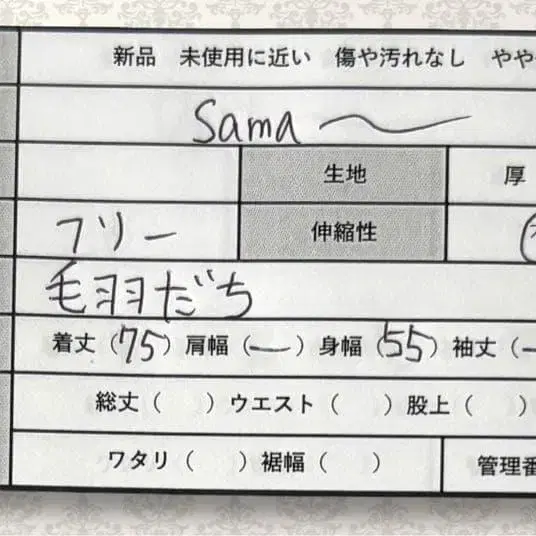 新品 未使用に近い 傷や汚れなし やや
Sama〜
生地 厚
フリー 伸縮性
毛羽だち
着丈（75）肩幅（ー）身幅（55）袖丈（ー
総丈（ ）ウエスト（ ）股上（ ）
ワタリ（ ）裾幅（ ） 管理番